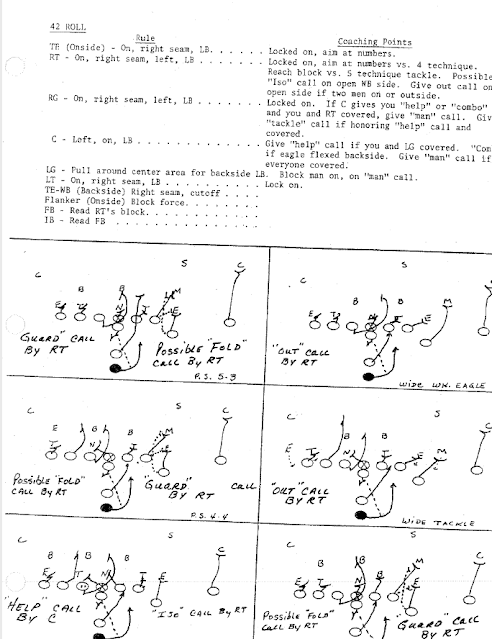 42 ROLL
Rule Coaching Points
TE (Onside) - On, right seam, LB. . . . . . Locked on, aim at numbers.
RT - On, right seam, left, LB . . . . . . . Locked on, aim at numbers vs. 4 technique.
Reach block vs. 5 technique tackle. Possible
"Iso" call on open WB side. Give out call on
open side if two men on or outside.
RG - On, right seam, left, LB . . . . . . . Locked on. If C gives you "help" or "combo"
and you and RT covered, give "man" call. Giv
"tackle" call if honoring "help" call and
covered.
C - Left, on, LB . . . . . . . . . . . . Give "help" call if you and LG covered. "Com
if eagle flexed backside. Give "man" call if
everyone covered.
LG - Pull around center area for backside LB. Block man on, on "man" call.
LT - On, right seam, LB . . . . . . . . . . Lock on.
TE-WB (Backside) Right seam, cutoff . . . .
Flanker (Onside) Block force. . . . . . . .
FB - Read RT's block. . . . . . . . . . .
IB - Read FB . . . . . . . . . . . . . .
C S C
B B M
E T N T E
GUARD" CALL
BY RT
POSSIBLE "FOLD"
CALL BY RT
P.S. 5-3
C S
B B M
E T N T E
"OUT" CALL
BY RT
WIDE WK. EAGLE
C S C
E B B M
T N T E
POSSIBLE "FOLD"
CALL BY RT
"GUARD" CALL
BY RT
P.S. 4-4
C S
B B
E T N T E M
"OUT" CALL
BY RT
WIDE TACKLE
C S C
B B
E T N T E
"HELP" CALL
BY C
"ISO" CALL BY RT
C S C
B B M
E T N T E
POSSIBLE FOLD"
CALL BY RT
"GUARD" CALL
BY RT